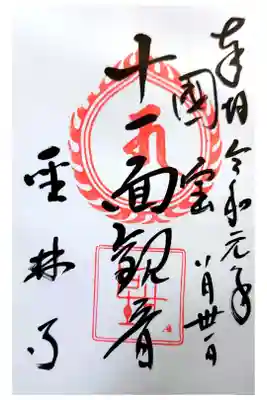 奉拝 令和元年八月卅一日
國宝
十一面観音
聖林寺